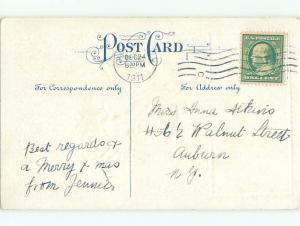 POST CARD
DEC 24
6 30 PM
1911
U.S. POSTAGE
ONE CENT
For Correspondence only
For Address only
Miss Anna Atkins
46 1/2 Walnut Street
Auburn
N.Y.
Best regards &
a Merry X mas
from Jennie